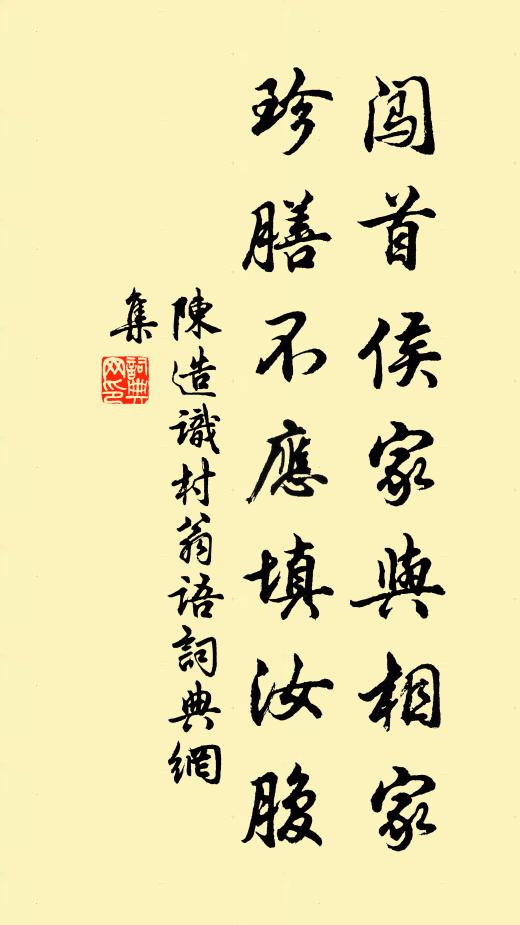 闯首侯家與相家
珍膳不應填汝腹
陳造識村翁語詞典網
集
詞典網印